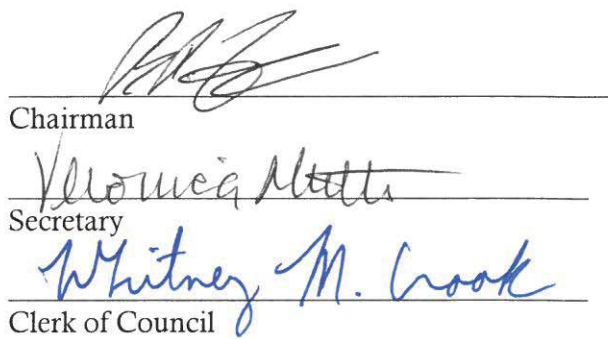 Chairman
Veronica
Secretary
Whitney M. Crook
Clerk of Council